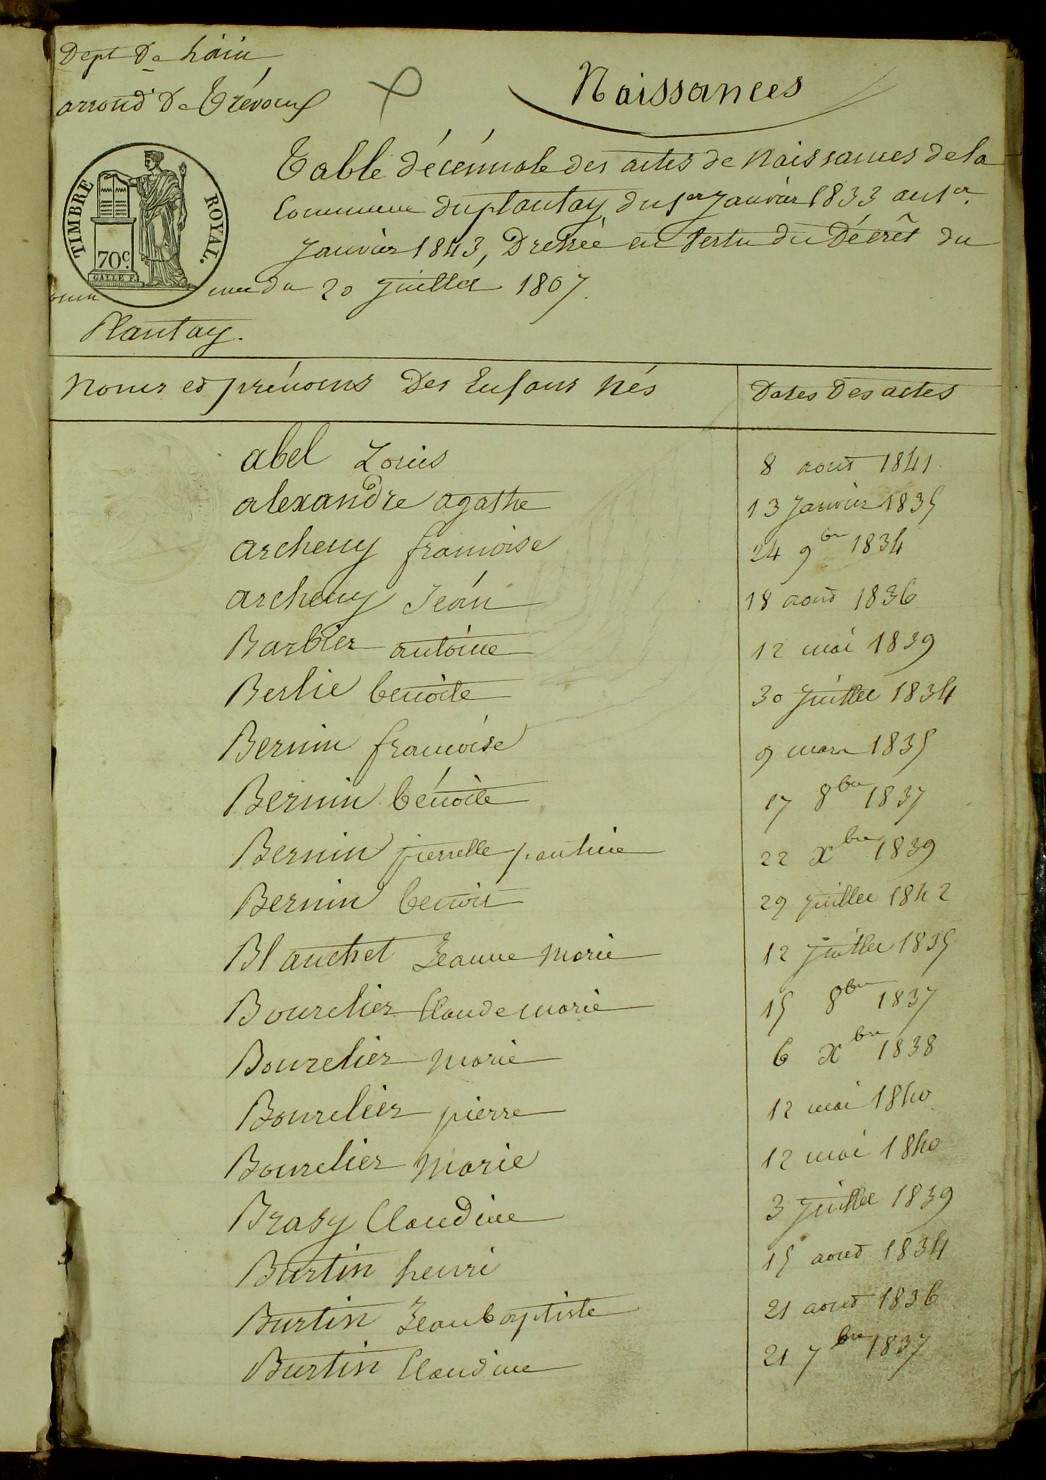 Dept De L'ain
arrond' De Trévoux
Naissances
TIMBRE ROYAL.
70c.
Table décénnale des actes de Naissances de la
Commune du plantay, du 1er Janvier 1833 au 1er.
Janvier 1843, Dressée en Vertu du Décrêt du
20 Juillet 1807.
Plantay.
Noms et prénoms Des Enfans Nés Dates Des actes
abel Louis 8 aout 1841.
alexandre agathe 13 Janvier 1835
archeny francoise 24 9bre 1834
archeny Jean 18 aout 1836
Barbier antoine 12 mai 1839
Berlie benoite 30 Juillet 1834
Bernin francoise 9 mars 1835
Bernin bénoite 17 8bre 1837
Bernin pierrette pauline 22 Xbre 1839
Bernin benoit 29 Juillet 1842
Blanchet Jeanne Marie 12 Juillet 1835
Bourelier Claude marie 15 8bre 1837
Bourelier Marie 6 Xbre 1838
Bourelier pierre 12 mai 1840
Bourelier Marie 12 mai 1840
Brasy Claudine 3 Juillet 1839
Burtin henri 15 aout 1834
Burtin Jean baptiste 21 aout 1836
Burtin Claudine 21 7bre 1837